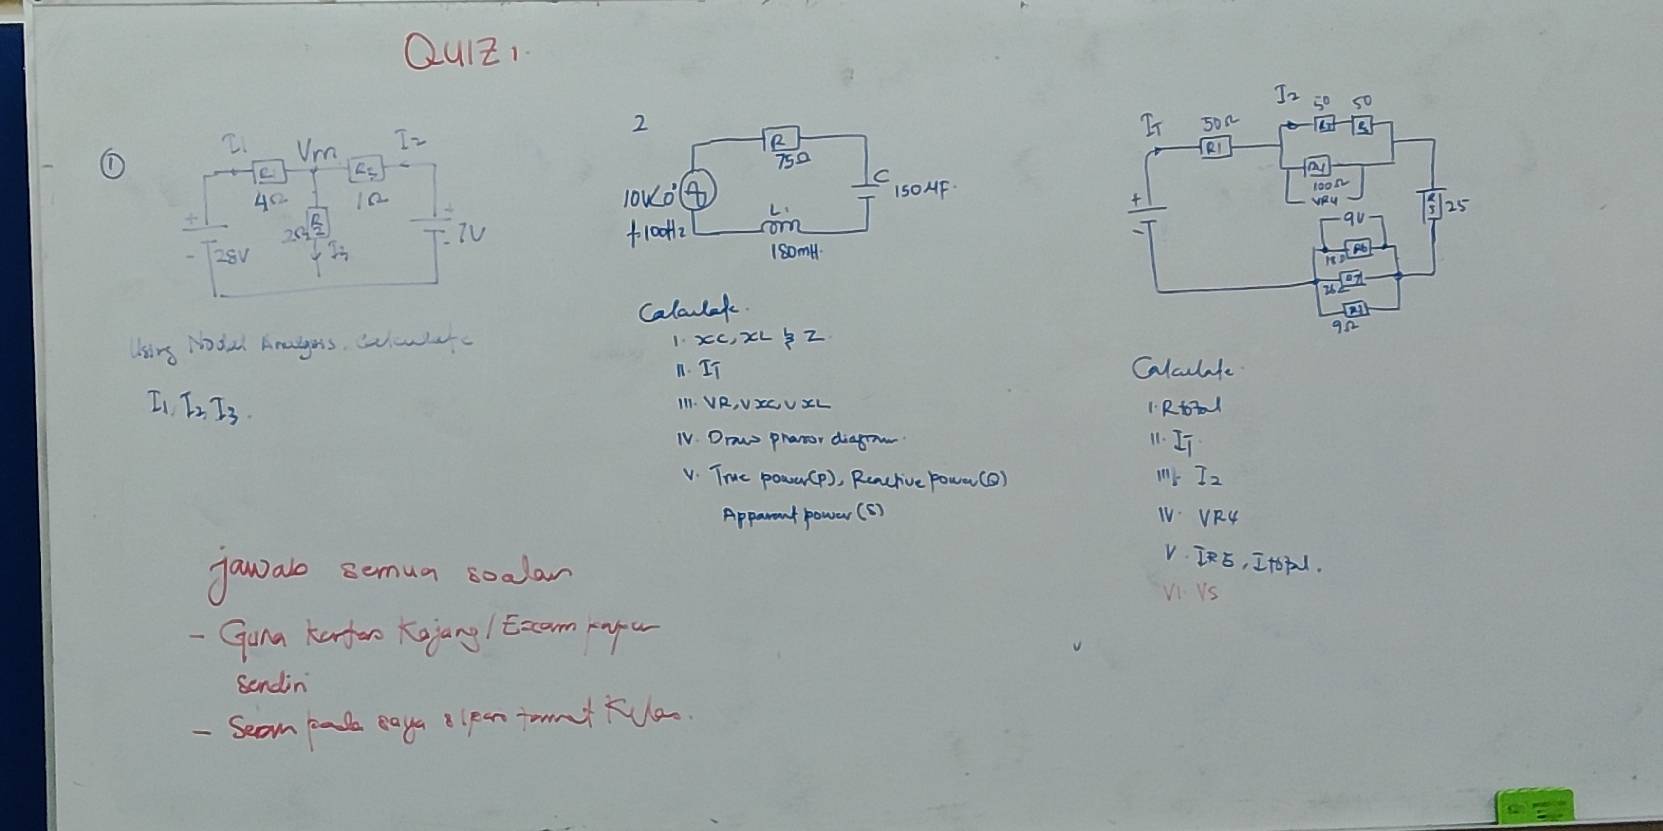 QUIZ 1.
①
I1
Vm
I2
R1
R3
4Ω
1Ω
R2
2Ω
I3
+
-
28V
+
-
7V
Using Nodal Analysis. Calculate
I1, I2, I3.
2
R
75Ω
C
150µF.
10V<0°
f=100Hz
L.
180mH.
Calculate.
I. XC, XL & Z.
II. IT
III. VR, VXC, VXL
IV. Draw phasor diagram.
V. True power(P), Reactive power(Q)
Apparent power (S)
IT
50Ω
R1
I2
50
50
R4
100Ω
VR4
R5
25
+
-
9V
R6
18Ω
9Ω
Calculate.
I. Rtotal
II. IT
III. I2
IV. VR4
V. IR5, Itotal.
VI. VS
jawab semua soalan
- Guna kertas Kajang / Exam paper
sendiri
- pada saya tamat Kelas.